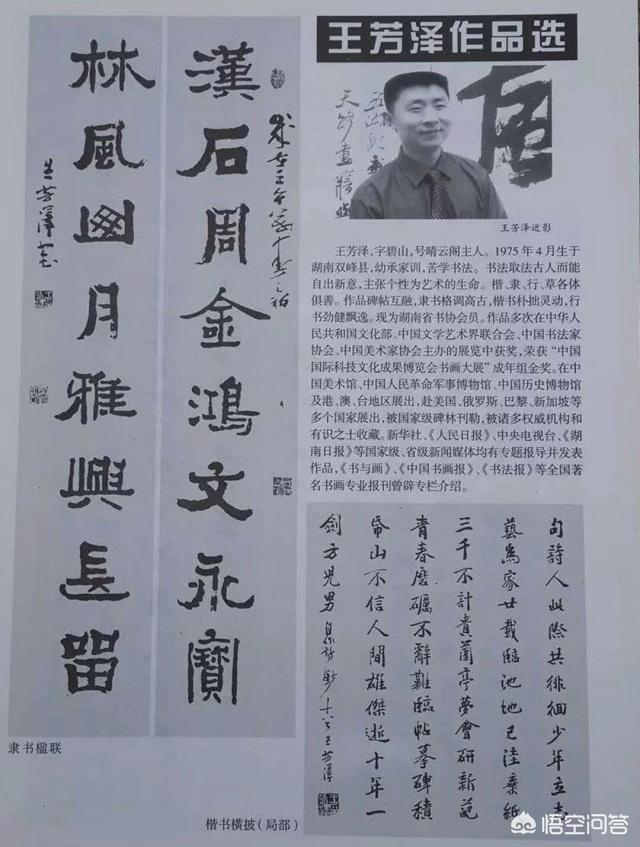 王芳泽作品选
漢石周金鴻文永寶
林風囪月雅興長留
王芳澤書
王芳泽近影
王芳泽,字碧山,号晴云阁主人。1975年4月生于
湖南双峰县,幼承家训,苦学书法。书法取法古人而能
自出新意,主张个性为艺术的生命。楷、隶、行、草各体
俱善。作品碑帖互融,隶书格调高古,楷书朴拙灵动,行
书劲健飘逸。现为湖南省书协会员。作品多次在中华人
民共和国文化部、中国文学艺术界联合会、中国书法家
协会、中国美术家协会主办的展览中获奖,荣获“中国
国际科技文化成果博览会书画大展”成年组金奖。在中
国美术馆、中国人民革命军事博物馆、中国历史博物馆
及港、澳、台地区展出,赴美国、俄罗斯、巴黎、新加坡等
多个国家展出,被国家级碑林刊勒,被诸多权威机构和
有识之士收藏。新华社、《人民日报》、中央电视台、《湖
南日报》等国家级、省级新闻媒体均有专题报导并发表
作品,《书与画》、《中国书画报》、《书法报》等全国著
名书画专业报刊曾辟专栏介绍。
句詩人此際共徘徊少年立志
藝為家廿載臨池地已窪棄紙
三千不計貴蘭亭夢會研新葩
青春磨礪不辭難臨帖摹碑積
帋山不信人間雄傑逝十年一
劍方兒男 王芳澤
隶书楹联
楷书横披(局部)
悟空问答